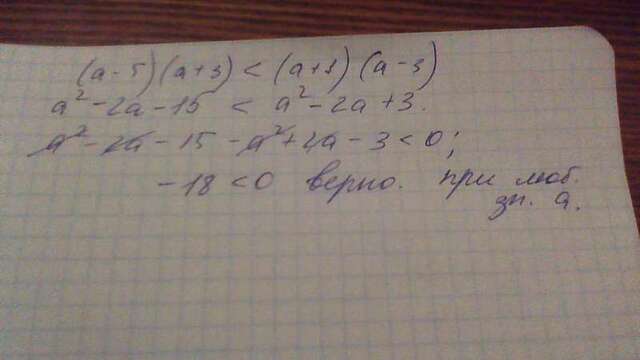 (a-5)(a+3) < (a+1)(a-3)
a²-2a-15 < a²-2a+3.
a²-2a-15-a²+2a-3<0;
-18<0 верно. при люб.
зн. a.